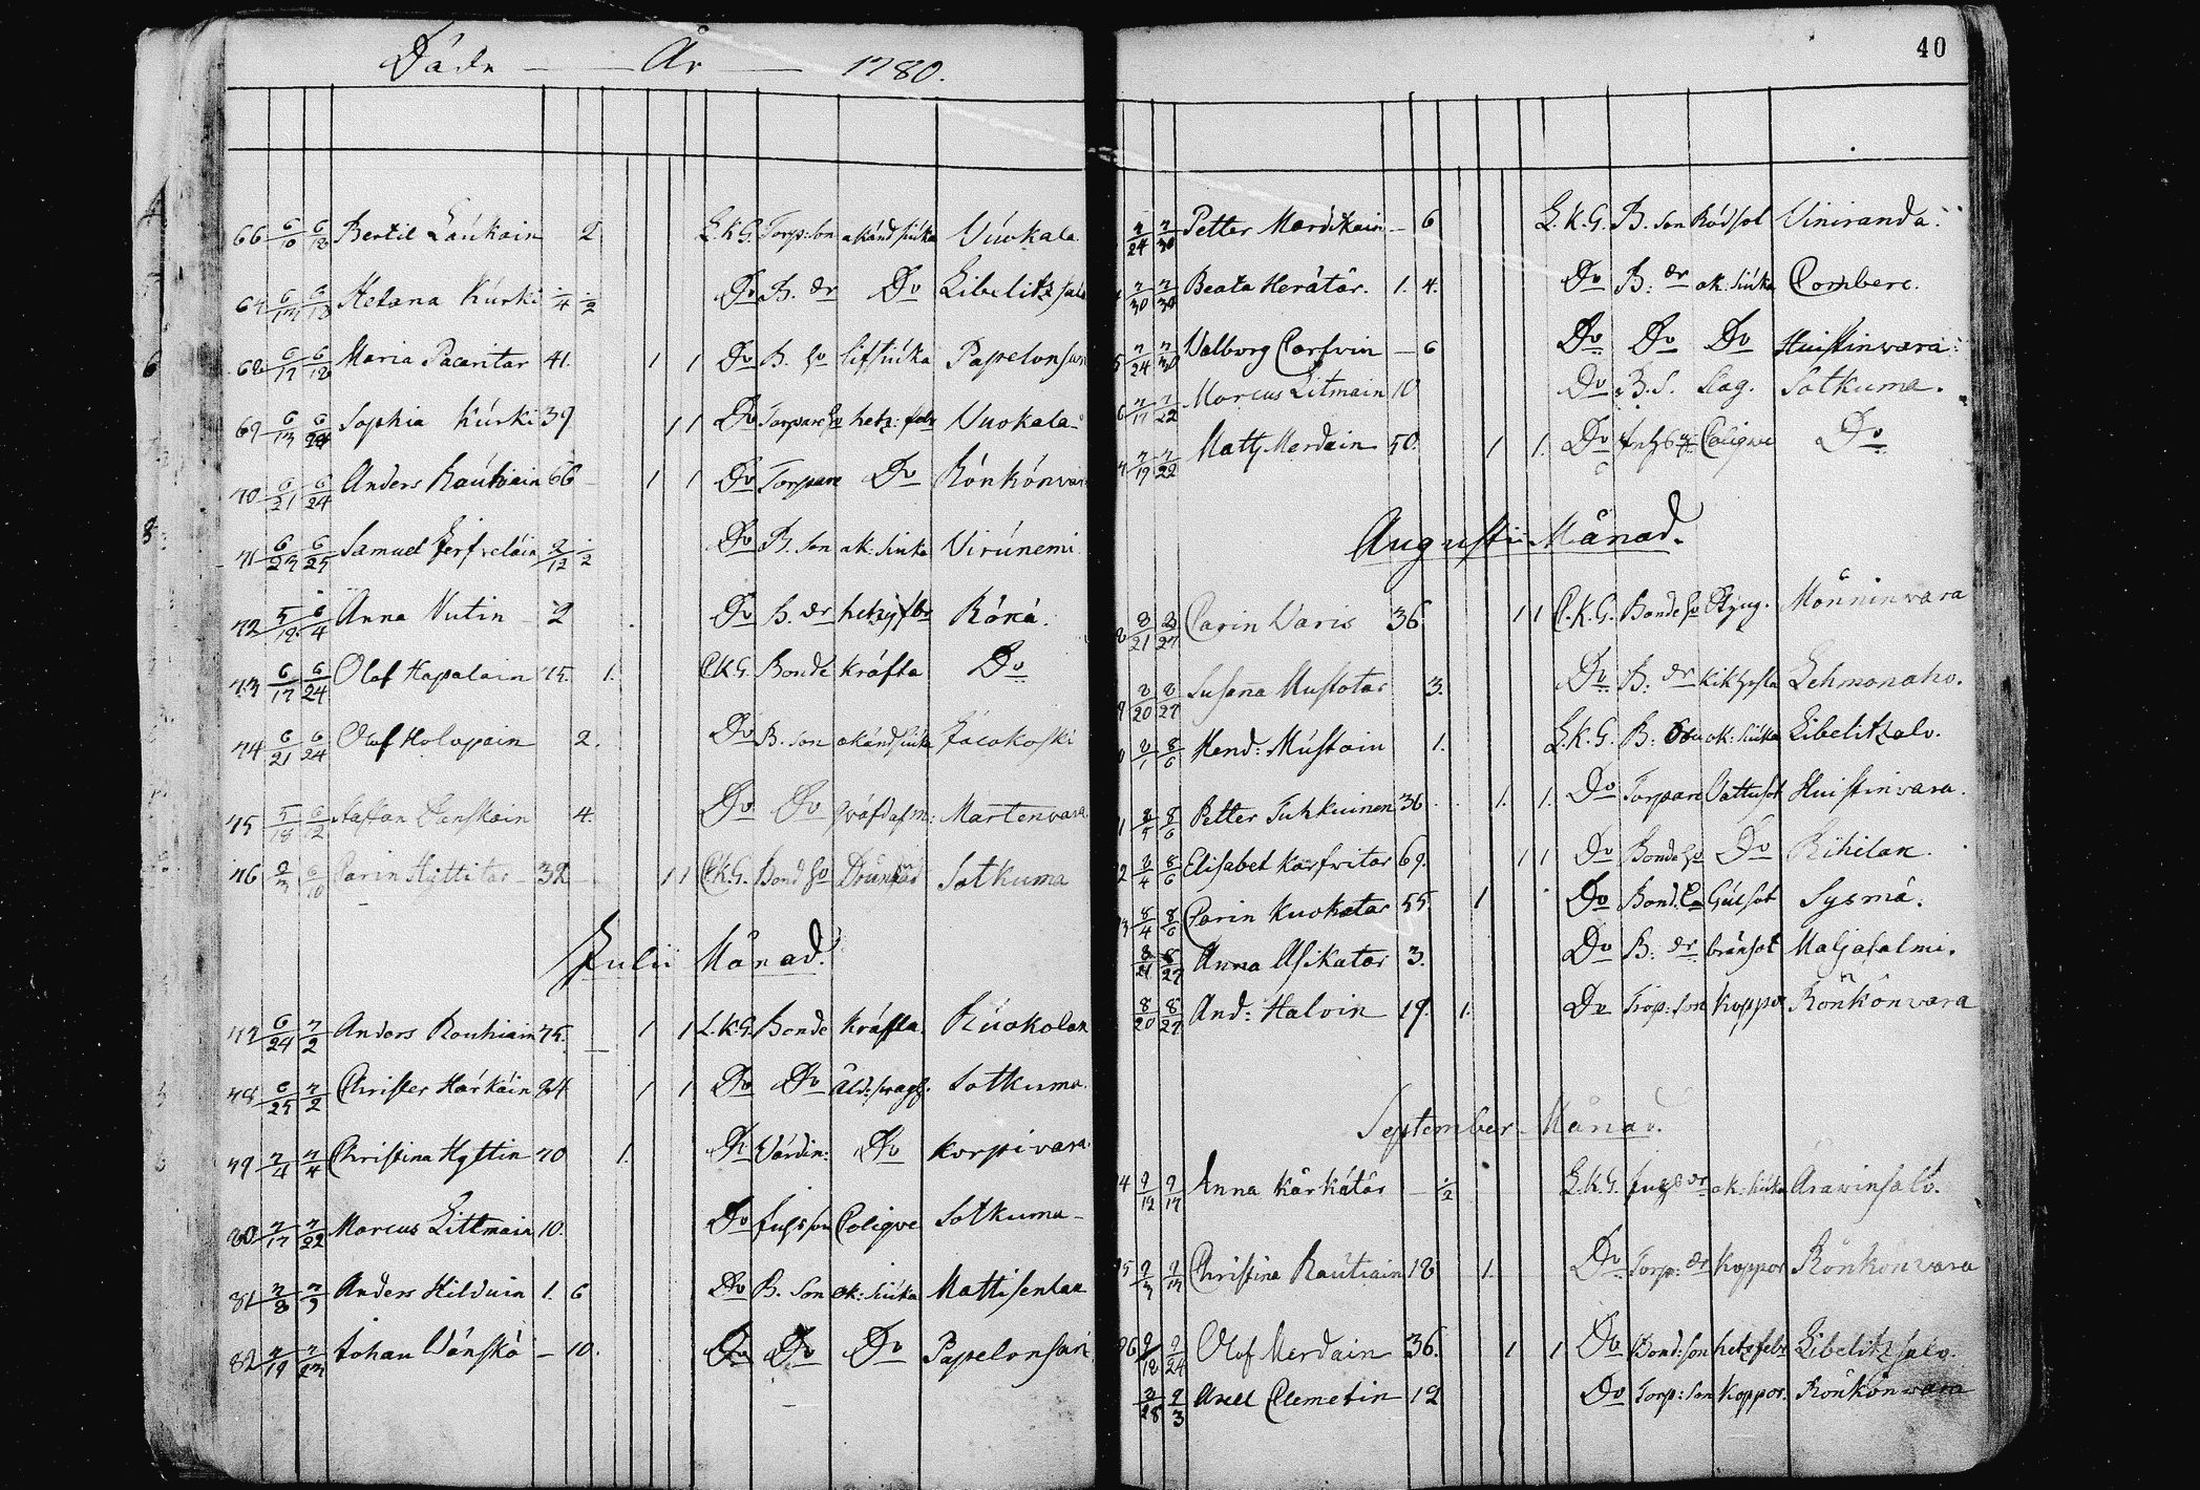 Döde — År — 1780.
66 6/10 6/18 Bertil Laükain 2 L.K.G. Torp: son okänd siúka Vúokala.
67 6/13 6/18 Helana Kúrki 1/4 1/2 Do B. dr Do Libelitz salo
68 6/17 6/18 Maria Pacaritar 41. 1 1 Do B. hu Papelonsari
69 6/13 6/24 Sophia Kúrki 39 1 1 Do Torpare hu hetz: febr Vuokala
70 6/21 6/24 Anders Raútiain 66 1 1 Do Torpare Do Rönkönvar
71 6/23 6/25 Samuel 2/12 1/2 Do B. son ok: siuka Virúnemi
72 5/12 6/4 Anna Nutin 2 Do B. dr hetzig febr Röná.
73 6/17 6/24 Olof Hapalain 75. 1. C.K.G. Bonde Kräfta Do
74 6/21 6/24 Olof Holopain 2. Do B. son okänd siúka Jácokoski
75 5/18 6/12 Staffan 4. Do Do Martenvara
76 6/3 6/10 Carin Hyttitar 32 1 1 C.K.G. Bond hu Sotkuma
Julii Månad.
77 6/24 7/2 Anders Rouhiain 75. 1 1 L.K.G. Bonde Kräfta. Rúokolax
78 6/25 7/2 Christer Härkäin 74 1 1 Do Do Åld: swagh. Sotkuma.
79 7/1 7/4 Christina Hyttin 70 1. Do Värdin: Do Korpivara.
80 7/17 7/22 Marcus Littmain 10. Do Colique Sotkuma
81 7/8 7/9 Anders Hilduin 1. 6 Do B. son ok: siúka Mattisenlax
82 7/19 7/23 Johan Vänskä — 10. Do Do Do Papelonsari
40
7/24 7/30 Petter Mardikain — 6 L.K.G. B. son Rödsot Viniranda.
7/30 7/30 Beata Herätär. 1. 4. Do B: dr ok: siúka Comberc.
7/24 7/30 Valborg Corfvin — 6 Do Do Do Huistinvara.
7/17 7/22 Marcus Litmain 10 Do B.S. Slag. Sotkuma.
7/19 7/22 Matts Merdain 50. 1 1. Do Colique Do
Augusti Månad.
8/21 8/27 Carin Varis 36 1 1 C.K.G. Bonde hu Mönninvara
8/20 8/27 Susana Mustotar 3. Do B: dr kikhosta Lehmonaho.
8/1 8/6 Hend: Mústoin 1. L.K.G. B: son ok: siúka Libelitzalo.
8/5 8/6 Petter Tuhkuinen 36 1. 1. Do Torpare Vattusot Huistinvara.
8/4 8/6 Elisabet Karfvitar 69. 1 1 Do Bonde hu Do Rihilax.
8/4 8/6 Carin Kuokatar 55 1 Do Gúlsot Sysmä.
8/21 8/27 Anna Asikatar 3. Do B: dr brånsot Maljasalmi.
8/20 8/27 And: Halvin 19. 1. Do Trop: son Koppor Rönkönvara
September Månad.
9/12 9/17 Anna Kärkätär — 1/2 L.K.G. dr ok: siuka Aravinsalo.
9/3 9/13 Christina Raútiain 18 1. Do Torp: dr Koppor Rönkönvara
9/18 9/24 Olof Merdain 36. 1 1 Do Bond: son hetz febr Libelitzsalo.
9/3 Axell Clemetin 12 Do Torp: son Koppor. Rönkönvara